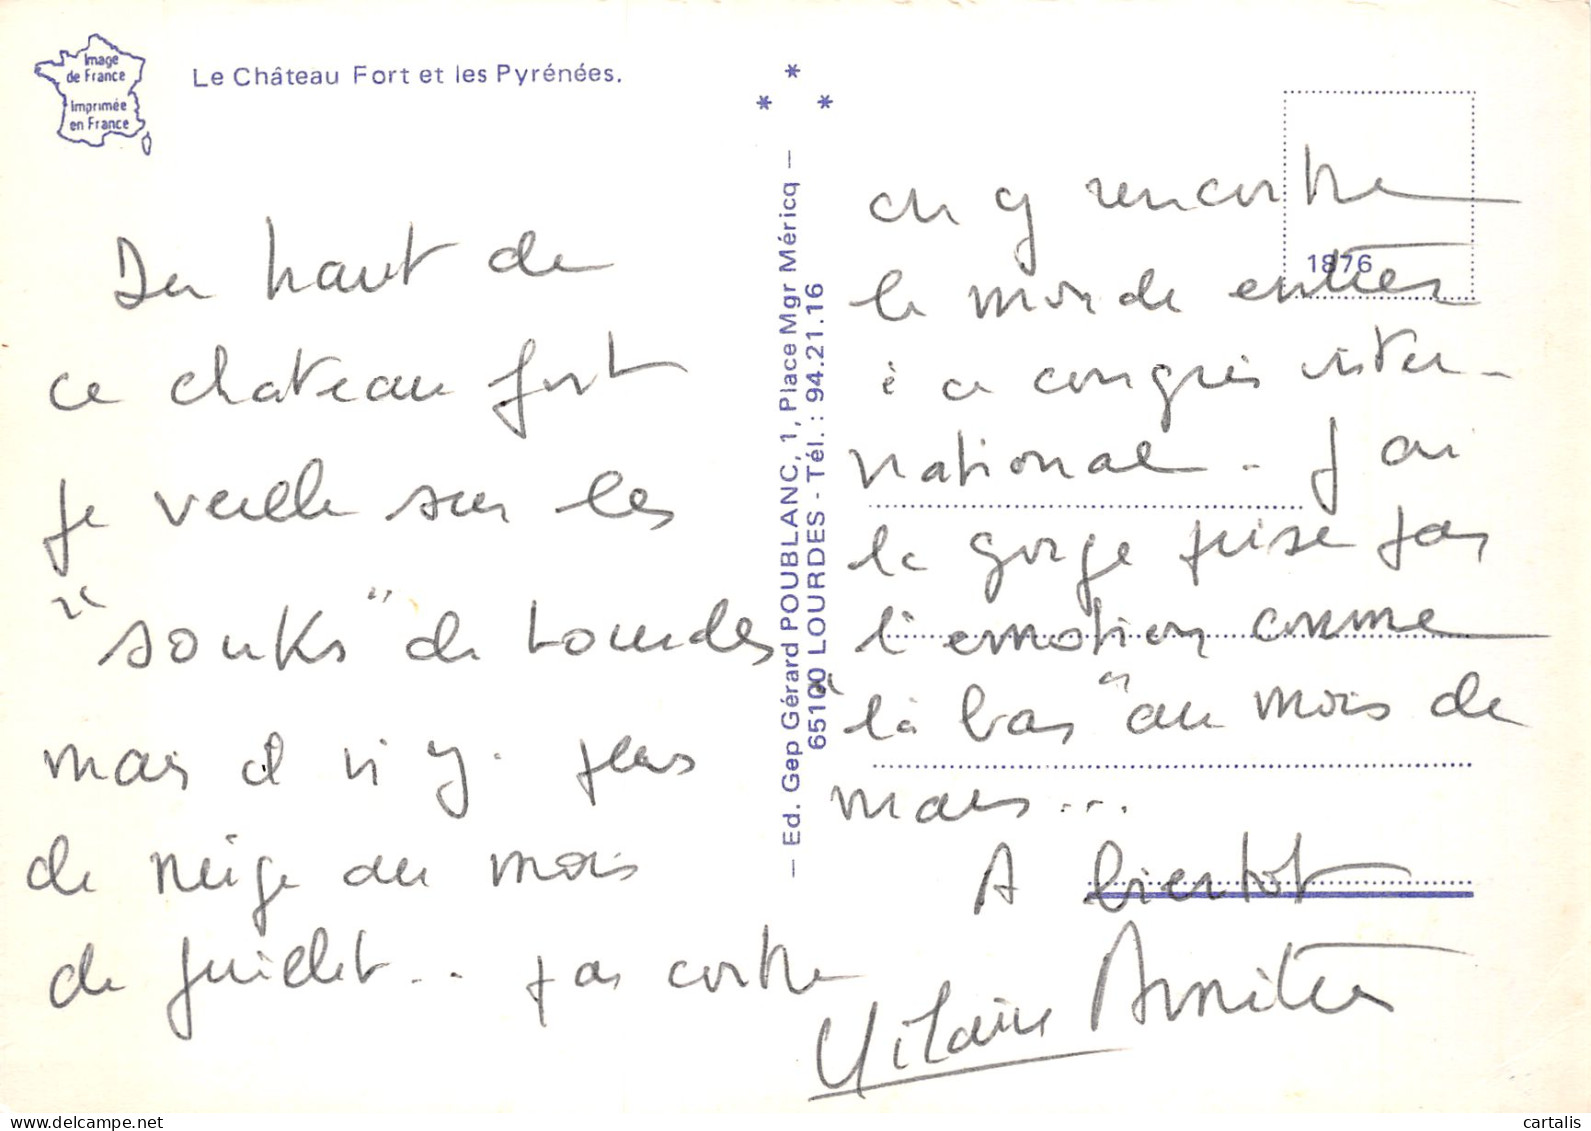 Image
de France
Imprimée
en France
Le Château Fort et les Pyrénées.
Du haut de
ce chateau fort
je veille sur les
"souks" de Lourdes
mais il n'y . plus
de neige au mois
de juillet.. par contre
— Ed. Gep Gérard POUBLANC, 1, Place Mgr Méricq —
65100 LOURDES - Tél. : 94.21.16
1876
on y rencontre
le monde entier
à ce congrès inter-
national. J'ai
la gorge prise par
l'émotion comme
"là bas" au mois de
mars...
A bientot
Hilaire
cartalis